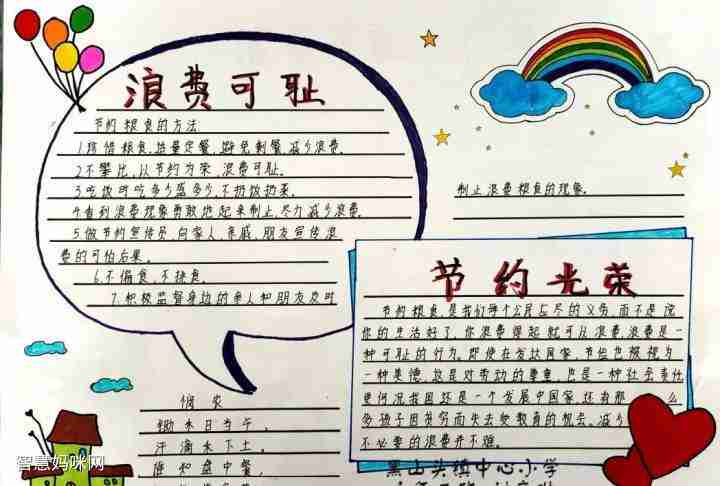 浪费可耻
节约粮食的方法
1.珍惜粮食,适量定餐,避免剩餐,减少浪费。
2.不攀比,以节约为荣,浪费可耻。
3.吃饭时吃多少盛多少,不扔饭菜。
4.看到浪费现象勇敢地起来制止,尽力减少浪费。
5.做节约宣传员,向家人、亲戚、朋友宣传浪
费的可怕后果。
6.不偏食,不挑食。
7.积极监督身边的亲人和朋友及时
制止浪费粮食的现象。
节约光荣
节约粮食,是我们每个公民应尽的义务,而不是说
你的生活好了,你浪费得起就可以浪费浪费是一
种可耻的行为,即使在发达国家,节俭也被视为
一种美德,这是对劳动的尊重,也是一种社会责任
更何况我国还是一个发展中国家,还有那 么
多孩子因贫穷而失去受教育的机会,减少
不必要的浪费并不难。
悯农
锄禾日当午,
汗滴禾下土。
谁知盘中餐,
黑山头镇中心小学
智慧妈咪网